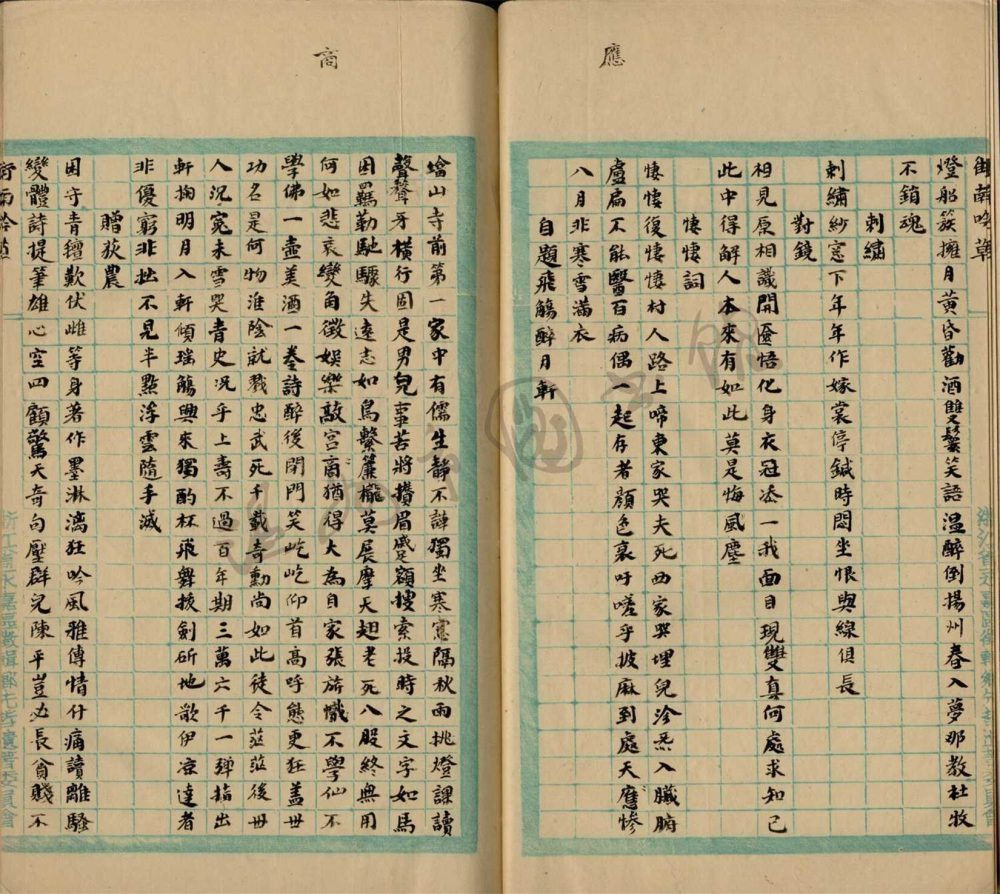 應
燈船簇擁月黃昏勸酒雙鬟笑語溫醉倒揚州春入夢那教杜牧
不銷魂
刺繡
刺繡紗窓下年年作嫁裳停鍼時悶坐恨與線俱長
對鏡
相見原相識開匳悟化身衣冠忝一我面目現雙真何處求知己
此中得解人本來有如此莫是悔風塵
悽悽詞
悽悽復悽悽村人路上啼東家哭夫死西家哭埋兒沴炁入臟腑
盧扁不能醫百病偶一起存者顏色衰吁嗟乎披麻到處天應慘
八月非寒雪滿衣
自題飛觴醉月軒
商
山寺前第一家中有儒生靜不譁獨坐寒窓隔秋雨挑燈課讀
聲聱牙橫行固是男兒事苦將攢眉蹙額搜索投時之文字如馬
困羈勒馳驟失遠志如鳥繫簾櫳莫展摩天翅老死八股終無用
何如悲哀變角徵娛樂敲宮商猶得大為自家張旂幟不學仙不
學佛一壺美酒一卷詩醉後閉門笑屹屹仰首高呼態更狂蓋世
功名是何物淮陰就戮忠武死千載奇勳尚如此徒令茫茫後世
人沉冤未雪哭青史況乎上壽不過百年期三萬六千一彈指出
軒掬明月入軒傾瑞觴興來獨酌杯飛舞拔劍斫地歌伊涼達者
非優窮非拙不見半點浮雲隨手滅
贈荻農
困守青氊歎伏雌等身著作墨淋漓狂吟風雅傳情什痛讀離騷
變體詩提筆雄心空四顧驚天奇句壓群兒陳平豈必長貧賤不